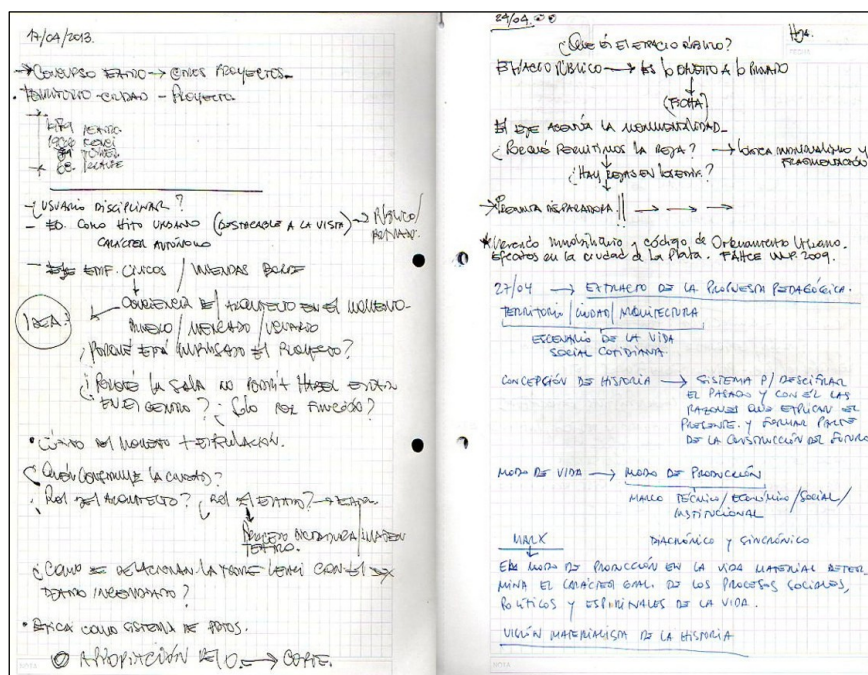 17/04/2013.
→ CONCURSO TEATRO → OTROS PROYECTOS.
• TERRITORIO - CIUDAD - PROYECTO.
¿USUARIO DISCIPLINAR?
- ED. COMO HITO URBANO (DESTACABLE A LA VISTA) → PÚBLICO/
PRIVADO.
CARÁCTER AUTÓNOMO
EDIF. CÍVICOS / VIVIENDAS BORDE
IDEA:
CONCIENCIA DEL ARQUITECTO EN EL MOMENTO
/ MERCADO / USUARIO
¿PORQUÉ ESTÁ EL PROYECTO?
¿PORQUÉ LA SALA NO PODRÍA HABER ESTADO
EN EL CENTRO? ¿SOLO POR FUNCIÓN?
¿QUIÉN CONSTRUYE LA CIUDAD?
¿ROL DEL ARQUITECTO? ¿ROL DEL ESTADO?
PROCESO DICTADURA
TEATRO.
¿CÓMO SE RELACIONAN LA TORRE LENCI CON EL EX
TEATRO INCENDIADO?
• ÉTICA COMO SISTEMA DE
APROPIACIÓN DE LO → CORTE.
24/04
Hoja.
FECHA
¿QUÉ ES EL ESPACIO PÚBLICO?
ESPACIO PÚBLICO → ES LO OPUESTO A LO PRIVADO
(FICHA)
EL EJE ACENTÚA LA MONUMENTALIDAD
¿PORQUÉ PERMITIMOS LA REJA? → LÓGICA INDIVIDUALISMO Y
FRAGMENTACIÓN
¿HAY REJAS EN
→ PREGUNTA DISPARADORA → → →
* Mercado Inmobiliario y código de Ordenamiento Urbano.
Efectos en la ciudad de La Plata. 2009.
27/04 → EXTRACTO DE LA PROPUESTA PEDAGÓGICA.
TERRITORIO / CIUDAD / ARQUITECTURA
ESCENARIO DE LA VIDA
SOCIAL COTIDIANA.
CONCEPCIÓN DE HISTORIA → SISTEMA P/ DESCIFRAR
EL PASADO Y CON EL LAS
RAZONES QUE EXPLICAN EL
PRESENTE. Y FORMAR PARTE
DE LA CONSTRUCCIÓN DEL FUTURO
MODO DE VIDA → MODO DE PRODUCCIÓN
MARCO TÉCNICO / ECONÓMICO / SOCIAL /
INSTITUCIONAL
MARX DIACRÓNICO Y SINCRÓNICO
MODO DE PRODUCCIÓN EN LA VIDA MATERIAL DETER_
MINA EL CARÁCTER GRAL. DE LOS PROCESOS SOCIALES,
POLÍTICOS Y ESPIRITUALES DE LA VIDA.
VISIÓN MATERIALISTA DE LA HISTORIA
NOTA